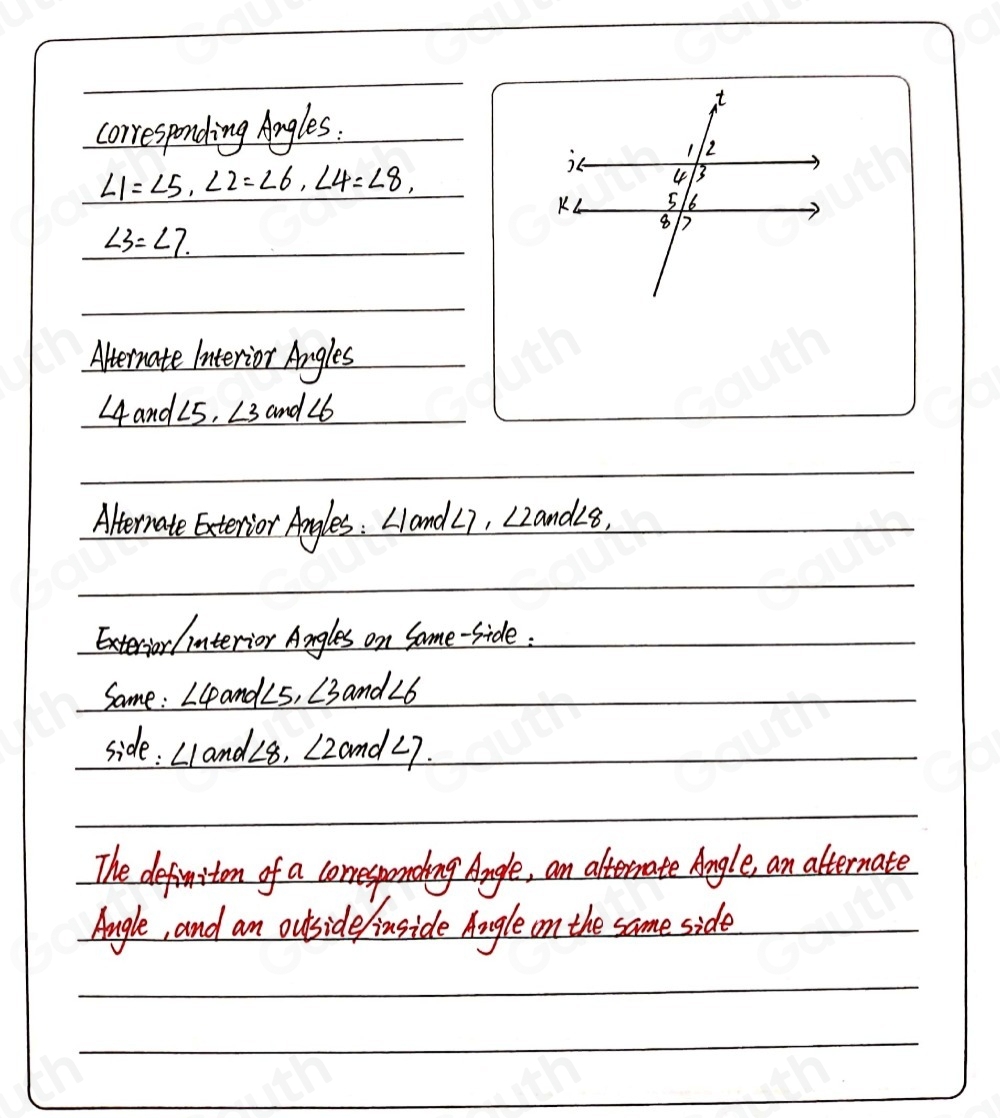 corresponding Angles:
∠1=∠5, ∠2=∠6, ∠4=∠8,
∠3=∠7.
Alternate Interior Angles
∠4 and ∠5, ∠3 and ∠6
Alternate Exterior Angles: ∠1 and ∠7, ∠2 and ∠8,
Exterior/interior Angles on Same-Side:
Same: ∠4 and ∠5, ∠3 and ∠6
side: ∠1 and ∠8, ∠2 and ∠7.
The definiton of a corresponding Angle, an alternate Angle, an alternate
Angle, and an outside/inside Angle on the same side
t
j
1 2
4 3
K
5 6
8 7
Gauth